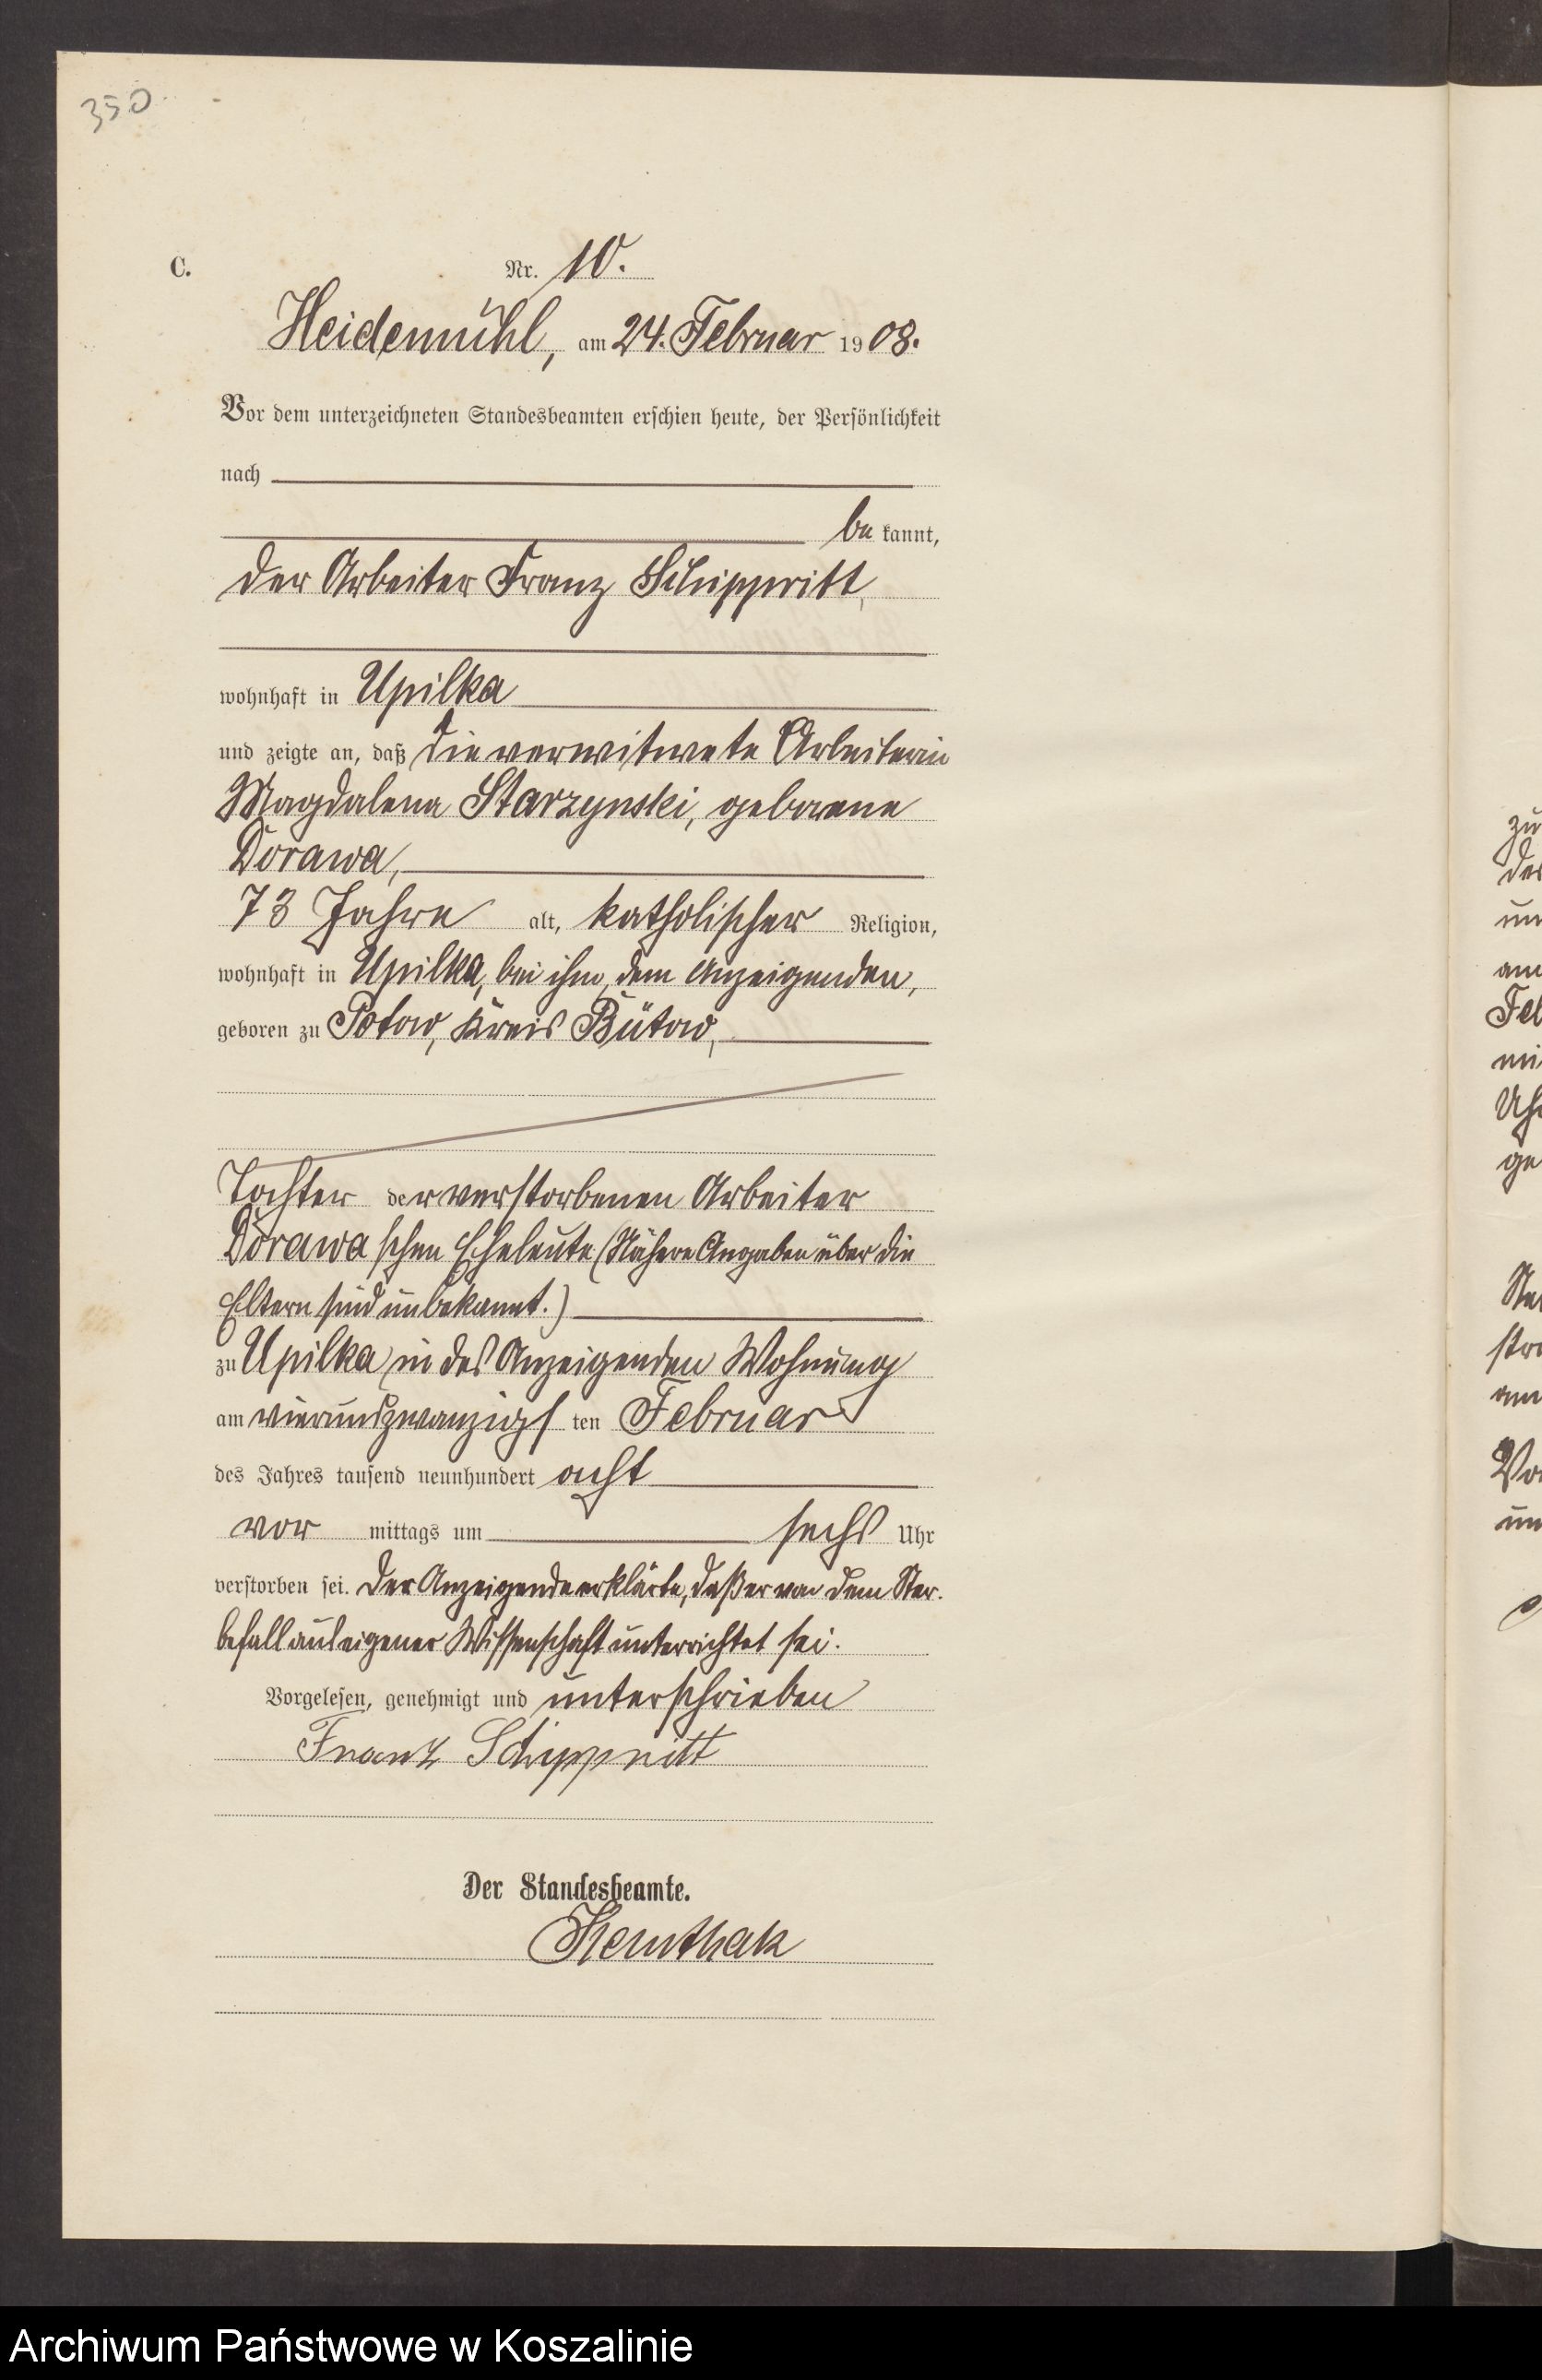 350
C.
Nr. 10.
Heidemühl, am 24. Februar 1908.
Vor dem unterzeichneten Standesbeamten erschien heute, der Persönlichkeit
nach
be kannt,
der Arbeiter Franz Schippritt,
wohnhaft in Upilka
und zeigte an, daß die verwitwete Arbeiterin
Magdalena Starzynski, geborene
Dorawa,
73 Jahre alt, katholischer Religion,
wohnhaft in Upilka, bei ihm, dem Anzeigenden,
geboren zu Kreis Bütow,
Tochter der verstorbenen Arbeiter
Dorawa schen Eheleute (Nähere Angaben über die
Eltern sind unbekannt.)
zu Upilka in des Anzeigenden Wohnung
am vierundzwanzigs ten Februar
des Jahres tausend neunhundert acht
vor mittags um sechs Uhr
verstorben sei. Der Anzeigende erklärte, daß er von dem Ster-
befall aus eigener Wissenschaft unterrichtet sei.
Vorgelesen, genehmigt und unterschrieben
Franz Schippritt
Der Standesbeamte.
Archiwum Państwowe w Koszalinie